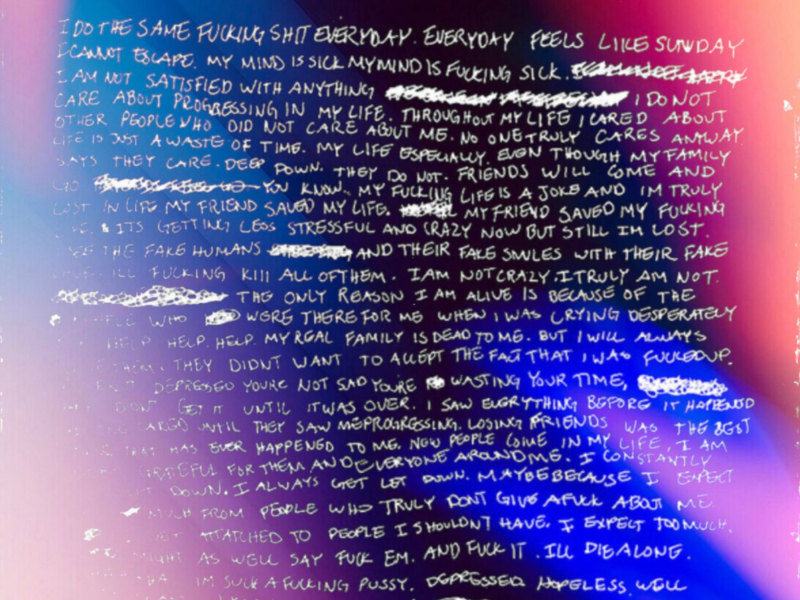 I DO THE SAME FUCKING SHIT EVERYDAY. EVERYDAY FEELS LIKE SUNDAY
I CANNOT ESCAPE. MY MIND IS SICK MY MIND IS FUCKING SICK.
I AM NOT SATISFIED WITH ANYTHING I DO NOT
CARE ABOUT PROGRESSING IN MY LIFE. THROUGHOUT MY LIFE I CARED ABOUT
OTHER PEOPLE WHO DID NOT CARE ABOUT ME. NO ONE TRULY CARES ANYWAY.
LIFE IS JUST A WASTE OF TIME. MY LIFE ESPECIALLY. EVEN THOUGH MY FAMILY
SAYS THEY CARE. DEEP DOWN. THEY DO NOT. FRIENDS WILL COME AND
GO YOU KNOW. MY FUCKING LIFE IS A JOKE AND IM TRULY
LOST IN LIFE MY FRIEND SAVED MY LIFE. MY FRIEND SAVED MY FUCKING
ITS GETTING LESS STRESSFUL AND CRAZY NOW BUT STILL IM LOST.
THE FAKE HUMANS AND THEIR FAKE SMILES WITH THEIR FAKE
ILL FUCKING KILL ALL OF THEM. I AM NOT CRAZY. I TRULY AM NOT.
THE ONLY REASON I AM ALIVE IS BECAUSE OF THE
WHO WERE THERE FOR ME WHEN I WAS CRYING DESPERATELY
HELP HELP. HELP. MY REAL FAMILY IS DEAD TO ME. BUT I WILL ALWAYS
THEM. THEY DIDNT WANT TO ACCEPT THE FACT THAT I WAS FUCKED UP.
DEPRESSED YOURE NOT SAD YOURE WASTING YOUR TIME,
DIDNT GET IT UNTIL IT WAS OVER. I SAW EVERYTHING BEFORE IT HAPPENED
CARED UNTIL THEY SAW ME PROGRESSING. LOSING FRIENDS WAS THE BEST
THAT HAS EVER HAPPENED TO ME. NEW PEOPLE COME IN MY LIFE, I AM
GRATEFUL FOR THEM AND EVERYONE AROUND ME. I CONSTANTLY
DOWN. I ALWAYS GET LET DOWN. MAYBE BECAUSE I EXPECT
MUCH FROM PEOPLE WHO TRULY DONT GIVE A FUCK ABOUT ME.
ATTATCHED TO PEOPLE I SHOULDN'T HAVE. I EXPECT TOO MUCH.
MIGHT AS WELL SAY FUCK EM. AND FUCK IT. ILL DIE ALONE.
IM SUCH A FUCKING PUSSY. DEPRESSED HOPELESS. WELL